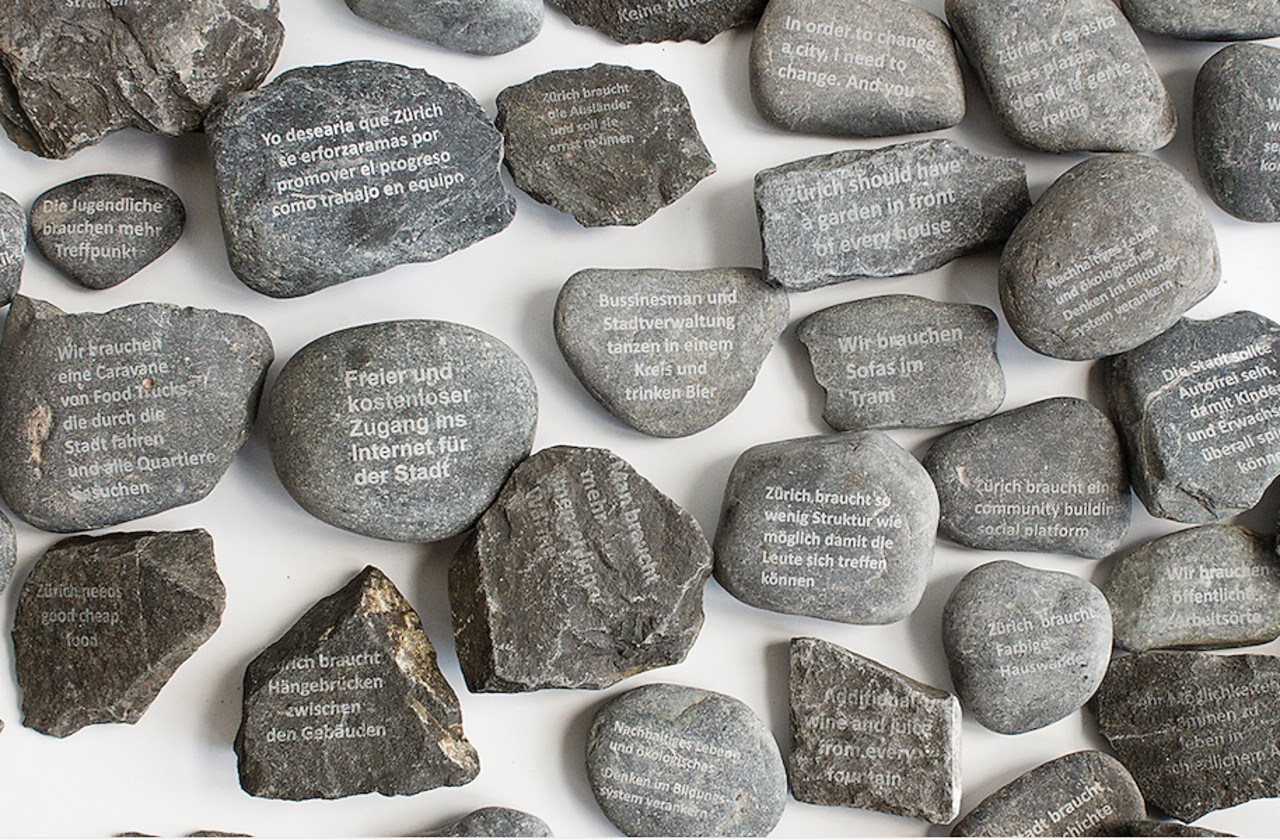 Keine
In order to change
a city, I need to
change. And you
mas plazas
Yo desearia que Zürich
se erforzaramas por
promover el progreso
como trabajo en equipo
Zürich braucht
die Ausländer
und soll sie
ernst nehmen
Zürich should have
a garden in front
of every house
Die Jugendliche
brauchen mehr
Treffpunkt
Nachhaltiges Leben
und ökologisches
Denken im Bildungs-
system verankern
Bussinesman und
Stadtverwaltung
tanzen in einem
Kreis und
trinken Bier
Wir brauchen
Sofas im
Tram
Wir brauchen
eine Caravane
von Food Trucks
die durch die
Stadt fahren
und alle Quartiere
Freier und
kostenloser
Zugang ins
Internet für
der Stadt
Die Stadt sollte
Autofrei sein,
damit Kinde
und Erwachs
überall spi
könne
Zürich braucht so
wenig Struktur wie
möglich damit die
Leute sich treffen
können
Zürich braucht ein
community buildin
social platform
man braucht
mehr
Wir brauchen
öffentliche
Arbeitsorte
Zürich needs
good cheap
foon
Zürich braucht
Farbige
Hauswände
rich braucht
Hängebrücken
zwischen
den Gebäuden
Nachhaltiges Leben
und ökologisches
Denken im Bildungs-
system verankern
Additional
wine and juice
from every
fountain
leben in
adt braucht